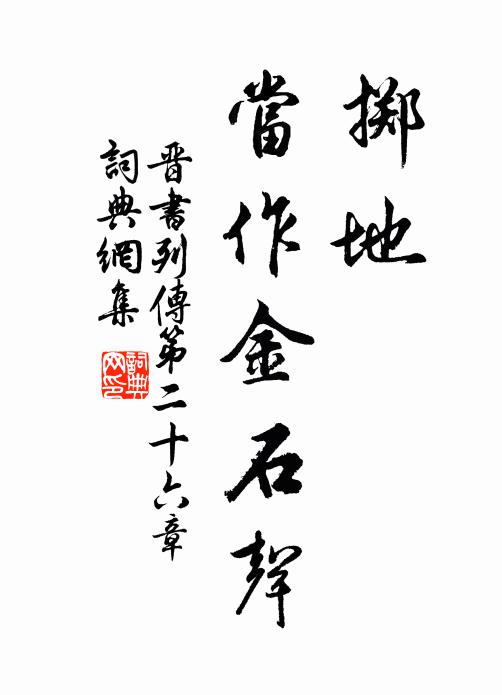 擲地
當作金石聲
晉書列傳第二十六章
詞典網集
詞典网印